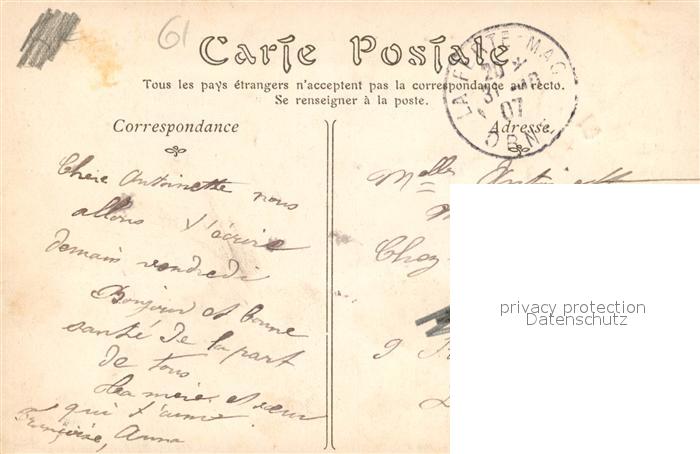 61
Carte Postale
Tous les pays étrangers n'acceptent pas la correspondance au recto.
Se renseigner à la poste.
LA FERTE-MAC
20 *
31
07
ORNE
Correspondance
Adresse
Chere Antoinette nous
allons t'écrire
demain vendredi
Bonjour et bonne
santé de la part
de tous
ta mere et sœur
qui t'aime
Françoise, Anna
Melle
Chez
9
privacy protection
Datenschutz